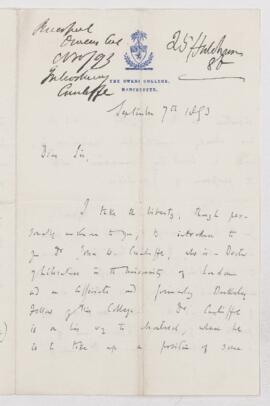 Owens Col
Cunliffe
THE OWENS COLLEGE,
MANCHESTER.
September 7th 1893
Dear Sir,
I take the liberty, though per-
sonally unknown to you, to introduce to
you Dr John W. Cunliffe, who is a Doctor
of Literature in the University of London
and an Associate and formerly Berkeley
Fellow of this College. Dr. Cunliffe
is on his way to Montreal, where he
is to take up a position of some